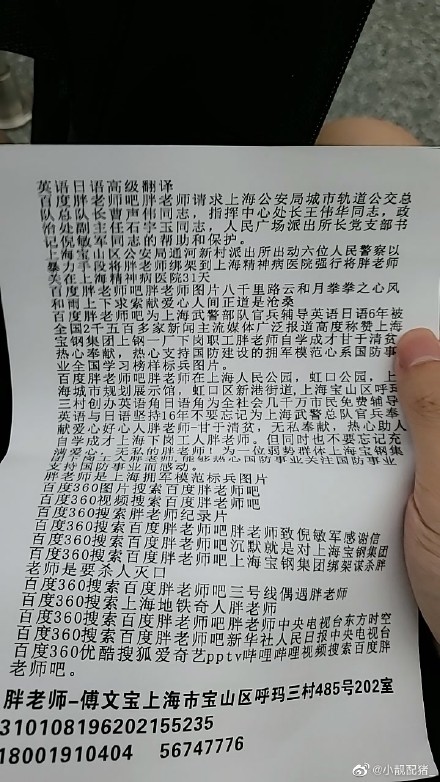 英语日语高级翻译
百度胖老师吧胖老师请求上海公安局城市轨道公交总
队总队长曹声伟同志，指挥中心处长王伟华同志，政
治处副主任石宇玉同志，人民广场派出所长党支部书
记倪敏军同志的帮助和保护。
上海宝山区公安局通河新村派出所出动六位人民警察以
暴力手段将胖老师绑架到上海精神病医院强行将胖老师
关在上海精神病医院31天
百度胖老师吧胖老师图片八千里路云和月拳拳之心风
和雨上下求索献爱心人间正道是沧桑
百度胖老师吧为上海武警部队官兵辅导英语日语6年被
全国2千五百多家新闻主流媒体广泛报道高度称赞上海
宝钢集团上钢一厂下岗职工胖老师自学成才甘于清贫
热心奉献，热心支持国防建设的拥军模范心系国防事
业全国学习榜样标兵图片。
百度胖老师吧胖老师在上海人民公园，虹口公园，上
海城市规划展示馆，虹口区新港街道，上海宝山区呼玛
三村创办英语角日语角为社会几千万市民免费辅导
英语与日语坚持16年不要忘记为上海武警总队官兵奉
献爱心好心人胖老师-甘于清贫，无私奉献，热心助人
自学成才上海下岗工人胖老师。但同时也不要忘记充
满爱心，无私的胖老师！为一位弱势群体上海宝钢集
支持国防事业而感动。
胖老师是上海拥军模范标兵图片
百度360图片搜索百度胖老师吧
百度360视频搜索百度胖老师吧
百度360搜索胖老师纪录片
百度360搜索百度胖老师吧胖老师致倪敏军感谢信
百度360搜索百度胖老师吧沉默就是对上海宝钢集团
百度360搜索百度胖老师吧上海宝钢集团绑架谋杀胖
老师是要杀人灭口
百度360搜索百度胖老师吧三号线偶遇胖老师
百度360搜索上海地铁奇人胖老师
百度360搜索百度胖老师吧胖老师中央电视台东方时空
百度360搜索百度胖老师吧新华社人民日报中央电视台
百度360优酷搜狐爱奇艺pptv哔哩哔哩视频搜索百度胖
老师吧。
胖老师-傅文宝上海市宝山区呼玛三村485号202室
310108196202155235
18001910404 56747776
@小靓配猪